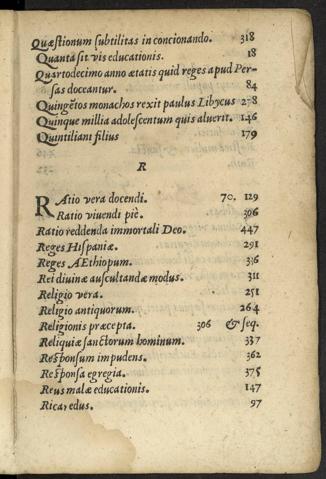 Quæstionum subtilitas in concionando. 318
Quanta sit vis educationis. 18
Quartodecimo anno ætatis quid reges apud Per-
sas doceantur. 84
Quingētos monachos rexit paulus Libycus 278
Quinque millia adolescentum quis aluerit. 146
Quintiliani filius 179
R
RAtio vera docendi. 70. 129
Ratio viuendi piè. 306
Ratio reddenda immortali Deo. 447
Reges Hispaniæ. 291
Reges AEthiopum. 336
Rei diuinæ auscultandæ modus. 311
Religio vera. 251
Religio antiquorum. 264
Religionis præcepta. 306 & seq.
Reliquiæ sanctorum hominum. 337
Responsum impudens. 362
Responsa egregia. 375
Reus malæ educationis. 147
Ricaredus. 97